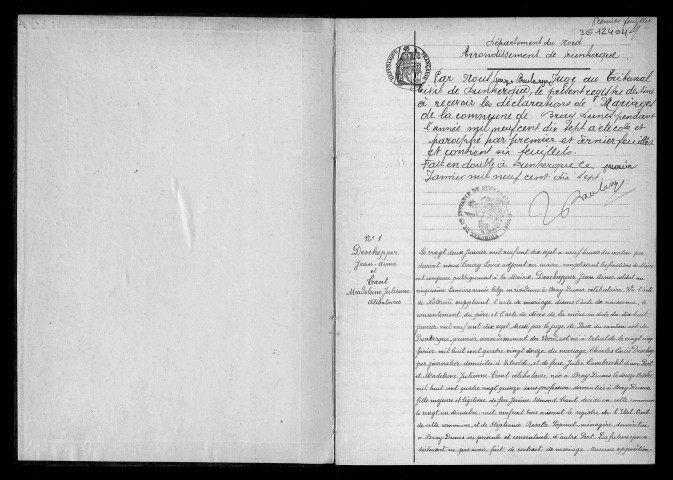 Premier feuillet
3E 12404
Département du Nord
Arrondissement de Dunkerque
RÉPUBLIQUE FRANÇAISE
Par Nous Juge au Tribunal
Civil de Dunkerque, le présent registre destiné
à recevoir les déclarations de Mariages
de la commune de Bray Dunes pendant
l'année mil neuf cent dix sept a été coté et
paraphé par premier et dernier feuillets
et contient six feuillets.
Fait en double à Dunkerque ce premier
Janvier mil neuf cent dix sept.
N° 1
Deschepper
Jean Aimé
et
Cant
Madeleine Julienne
Célibataires
Le vingt deux Janvier mil neuf cent dix sept à neuf heures du matin par
devant nous Louis adjoint au maire remplissant les fonctions de Maire
ont comparu publiquement à la Mairie Deschepper Jean Aimé soldat au
lanciers armée belge en résidence à Bray Dunes célibataire. Vu l'acte
de Notoriété suppléant l'acte de mariage sinon l'acte de naissance, le
consentement du père et l'acte de décès de la mère en date du dix huit
janvier mil neuf cent dix sept dressé par le juge de Paix du canton est de
Dunkerque, premier arrondissement du Nord est né à le vingt cinq
février mil huit cent quatre vingt douze du mariage Charles Louis Deschep
per journalier domicilié à et de feue Julie d'une Part
et Madeleine Julienne Cant célibataire née à Bray Dunes le douze Octobre
mil huit cent quatre vingt quinze sans profession domiciliée à Bray Dunes
fille majeure et légitime de feu Jérôme Edmond Cant décédé en cette commune
le vingt un décembre mil neuf cent trois suivant le registre de l'Etat Civil
de cette commune, et de Stéphanie Rosalie ménagère, domiciliée
à Bray Dunes ici présente et consentante d'autre Part. Les futurs époux
déclarent ne pas avoir fait de contrat de mariage. Aucune opposition